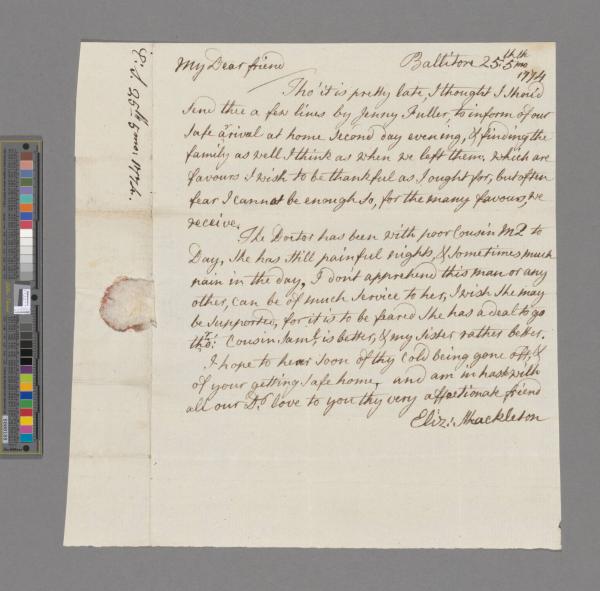 My Dear friend
Ballitore 25th 5th mo
1774
Tho' it is pretty late, I thought I should
send thee a few lines by Jenny Fuller, to inform of our
safe arival at home second day evening, & finding the
family as well I think as when we left them, which are
favours I wish to be thankful as I ought for, but often
fear I cannot be enough so, for the many favours, we
receive.
The Doctor has been with poor Cousin to
Day, She has still painful nights, & sometimes much
pain in the day, I don't apprehend this man or any
other, can be of much service to her, I wish she may
be supported, for it is to be feared she has a deal to go
thro: Cousin Saml is better, & my Sister rather better.
I hope to hear soon of thy Cold being gone off, &
of your getting safe home, and am in hast with
all our Dr love to you thy very affectionate friend
Eliz: Shackleton
25th 5 mo: 1774.